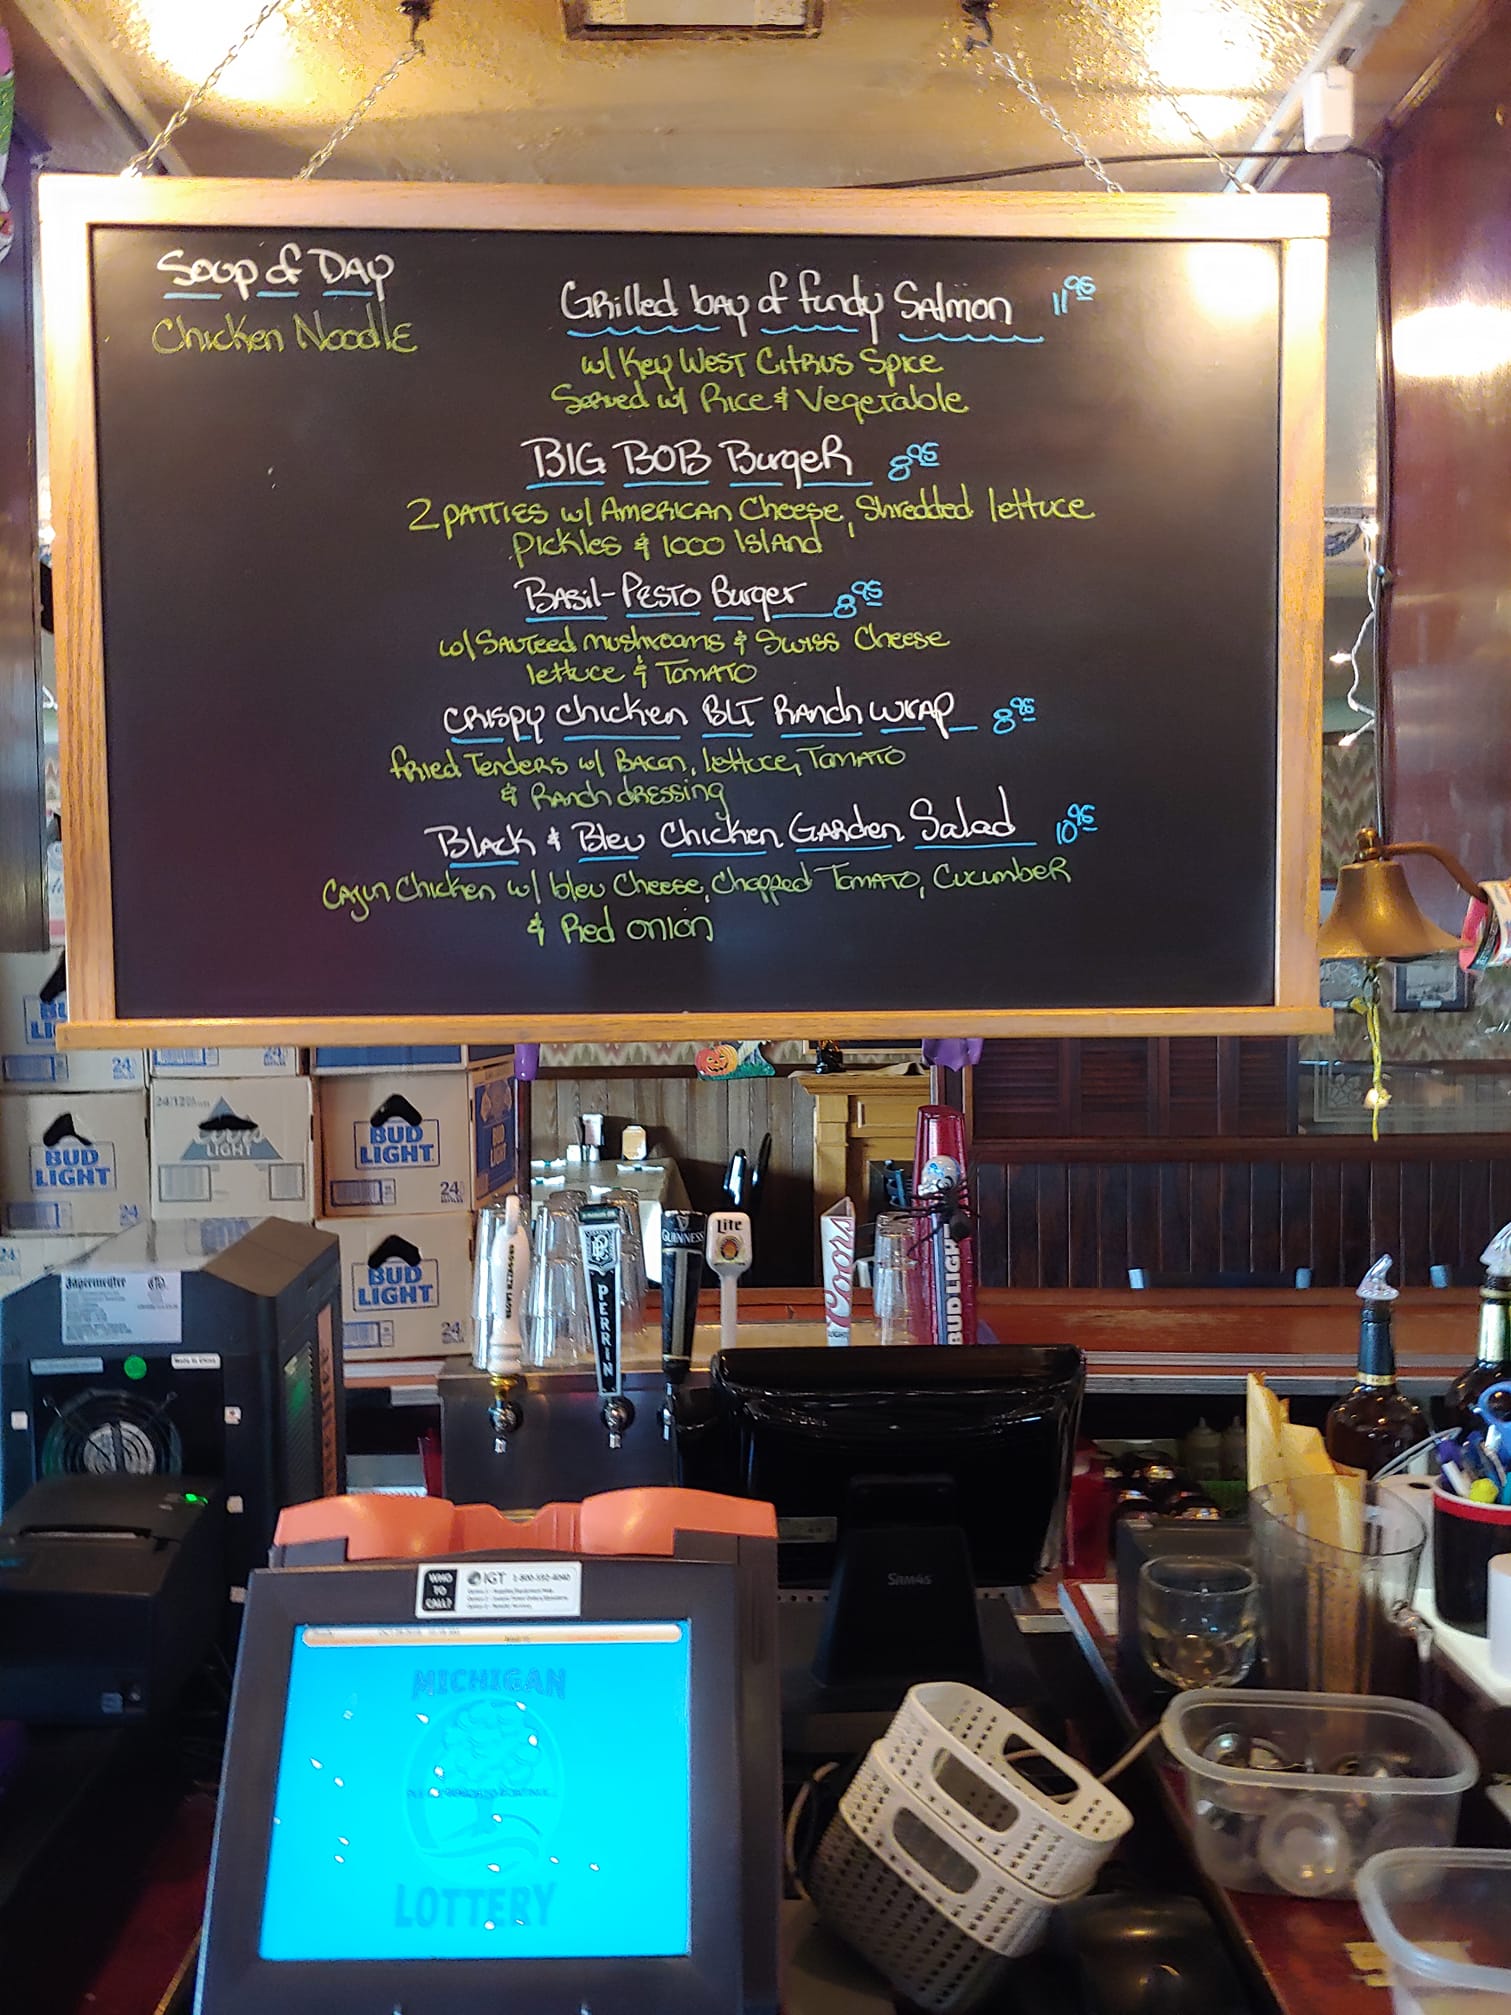 Soup of Day
Chicken Noodle
Grilled bay of fundy Salmon 11.95
w/ Key West Citrus Spice
Served w/ Rice & Vegetable
BIG BOB Burger 8.95
2 patties w/ American Cheese, Shredded lettuce
Pickles & 1000 Island
Basil-Pesto Burger 8.95
w/ Sauteed mushrooms & Swiss Cheese
lettuce & Tomato
Crispy Chicken BLT Ranch Wrap 8.95
fried Tenders w/ Bacon, lettuce, Tomato
& Ranch dressing
Black & Bleu Chicken Garden Salad 10.95
Cajun Chicken w/ bleu Cheese, Chopped Tomato, Cucumber
& Red onion
24
BUD
LIGHT
24
24/12
Coors
LIGHT
BUD
LIGHT
24
BUD
LIGHT
24
Jägermeister
PERRIN
GUINNESS
Lite
Coors
LIGHT
BUD LIGHT
SAM4s
WHO
TO
CALL?
IGT 1-800-552-4040
MICHIGAN
LOTTERY